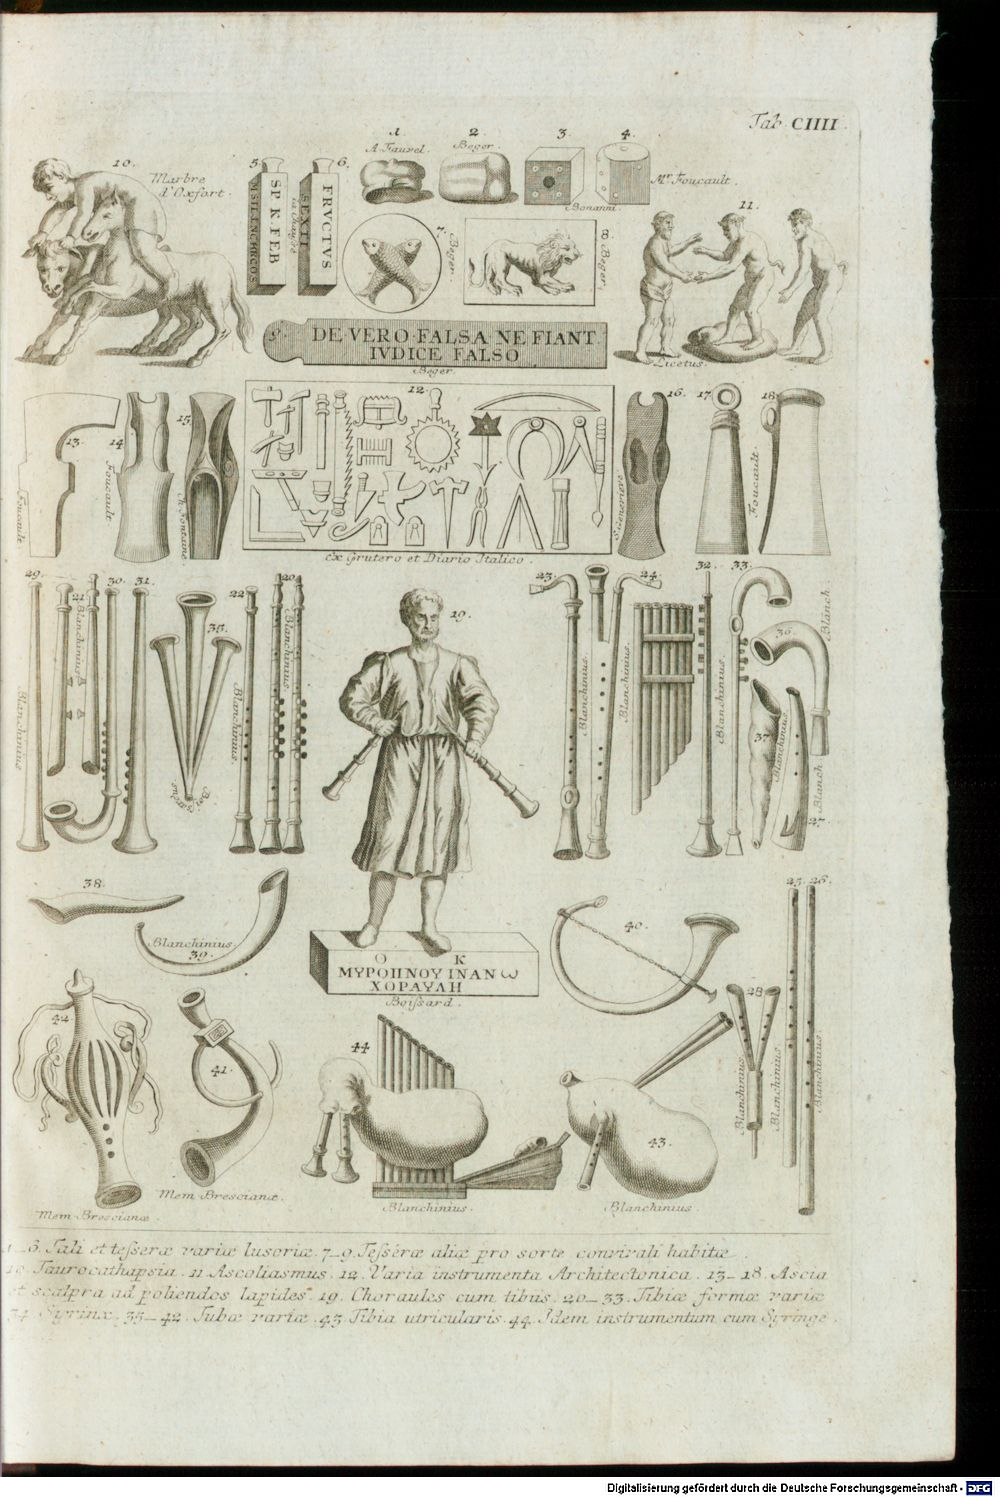 Tab. CIIII.
1
2
3.
4.
A. Fauvel.
Beger.
Mr. Foucault.
Bonanni.
10.
Marbre
d'Oxfort.
5.
6.
SP. K. FEB
FRVCTVS
SEXTI
7.
Beger.
8.
Beger.
11.
Licetus.
9.
DE·VERO·FALSA·NE FIANT
IVDICE FALSO
Beger.
12.
13.
14
15.
16.
17.
18.
Foucault.
Foucault.
Foucault.
S. Genevieve
ex Grutero et Diario Italico.
29.
21
30.
31.
22
20.
35.
19.
23.
24.
32.
33.
36.
37.
27.
Blanchinius
Blanchinius
Blanchinius
Blanchinius.
Blanchinius.
Blanchinius.
Blanchinius
Blanchinius
Blanch.
Blanch.
38.
Blanchinius.
39.
40.
25.
26.
28.
Blanchinius
Blanchinius
Blanchinius
Ο Κ
ΜΥΡΟΠΝΟΥ ΙΝΑΝω
ΧΟΡΑΥΛΗ
Boissard.
42.
41.
44
43.
Mem. Brescianæ.
Mem. Brescianæ.
Blanchinius.
Blanchinius.
1_6. Tali et tesseræ variæ lusoriæ. 7_9. Tesseræ aliæ pro sorte convivali habitæ.
10. Taurocathapsia. 11. Ascoliasmus. 12. Varia instrumenta Architectonica. 13_18. Ascia
et scalpra ad poliendos lapides. 19. Choraules cum tibiis. 20_33. Tibiæ formæ variæ
34. Syrinx. 35_42. Tubæ variæ. 43. Tibia utricularis. 44. Idem instrumentum cum Syringe.
Digitalisierung gefördert durch die Deutsche Forschungsgemeinschaft - DFG